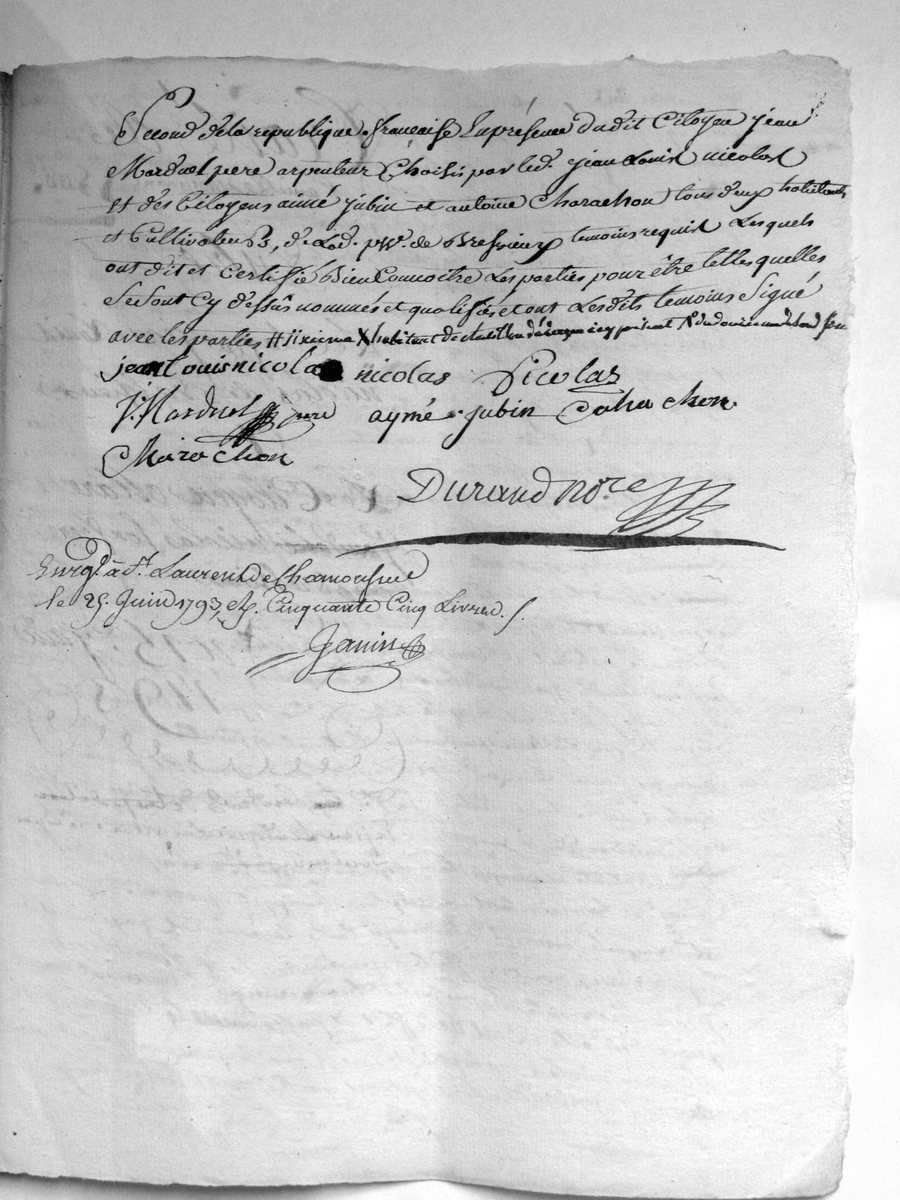 Second de la republique française En présence dudit Citoyen jean
Marduel pere arpenteur Choisis par led. jean Louis nicolas
Et des Citoyens aimé jubin et antoine Charachon tous deux habitants
et Cultivateurs, de Lad. psse. de Bressieux temoins requis Lesquels
ont dit et Certiffié Bien Connoitre Les parties pour être telles quelles
Se Sont Cy dessus nommés et qualifiés et ont Les dits temoins Signé
avec les parties X habitant de
jean louis nicolas nicolas Nicolas
J. Marduel pere aymé jubin
Durand nore
Enrgé. à St. Laurent de Chamousset
le 25. Juin 1793, Cinquante Cinq Livres
Janin